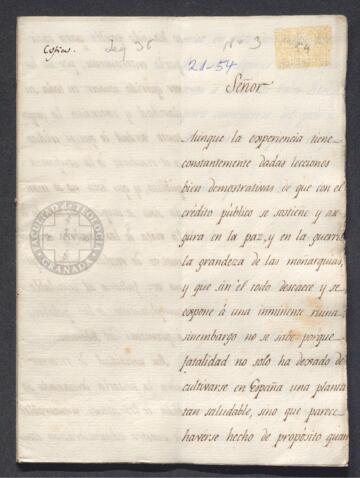 Copias.
Leg 36
Nº 3
21-54
Señor
Aunque la experiencia tiene
constantemente dadas lecciones
bien demostrativas de que con el
crédito público se sostiene y ase
gura en la paz, y en la guerra
la grandeza de las monarquias,
y que sin èl todo descaece y se
expone â una inminente ruina
sinembargo no se sabe porque
fatalidad no solo ha dexado de
cultivarse en España una planta
tan saludable, sino que parece
haverse hecho de propòsito quan
FACULTAD DE TEOLOGIA
GRANADA